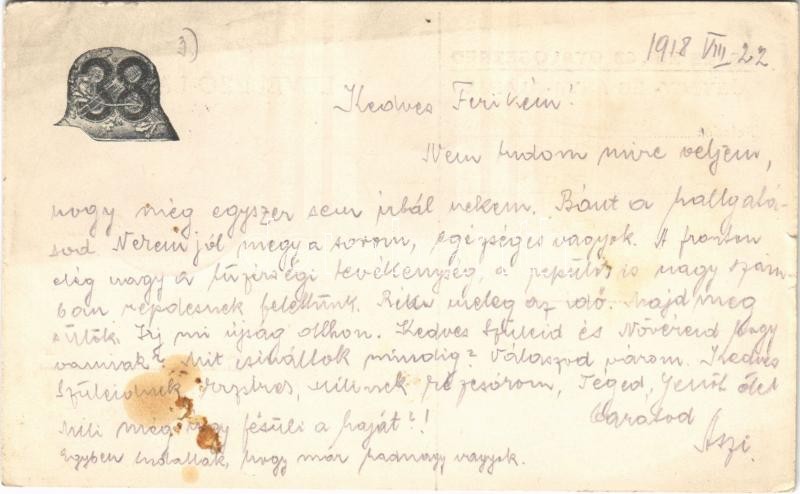 3)
1918 VIII-22
38
Kedves Ferikém!
Nem tudom mire véljem,
hogy még egyszer sem írtál nekem. Bánt a hallgatá-
sod. Nekem jól megy a sorom, egészséges vagyok. A fronton
elég nagy a tüzérségi tevékenység, a repülős is nagy szám-
ban repdesnek felettünk. meleg az idő. majd meg
sülök. Írj mi újság otthon. Kedves Szüleid és Nővéreid hogy
vannak? Mit csináltok mindig? Válaszod várom. Kedves
Szüleidnek Milinek kézcsókom, Téged, Jenőt ölel
Mili még úgy fésüli a haját?!
Barátod
Aszi.
Egyben tudatlak, hogy már hadnagy vagyok.